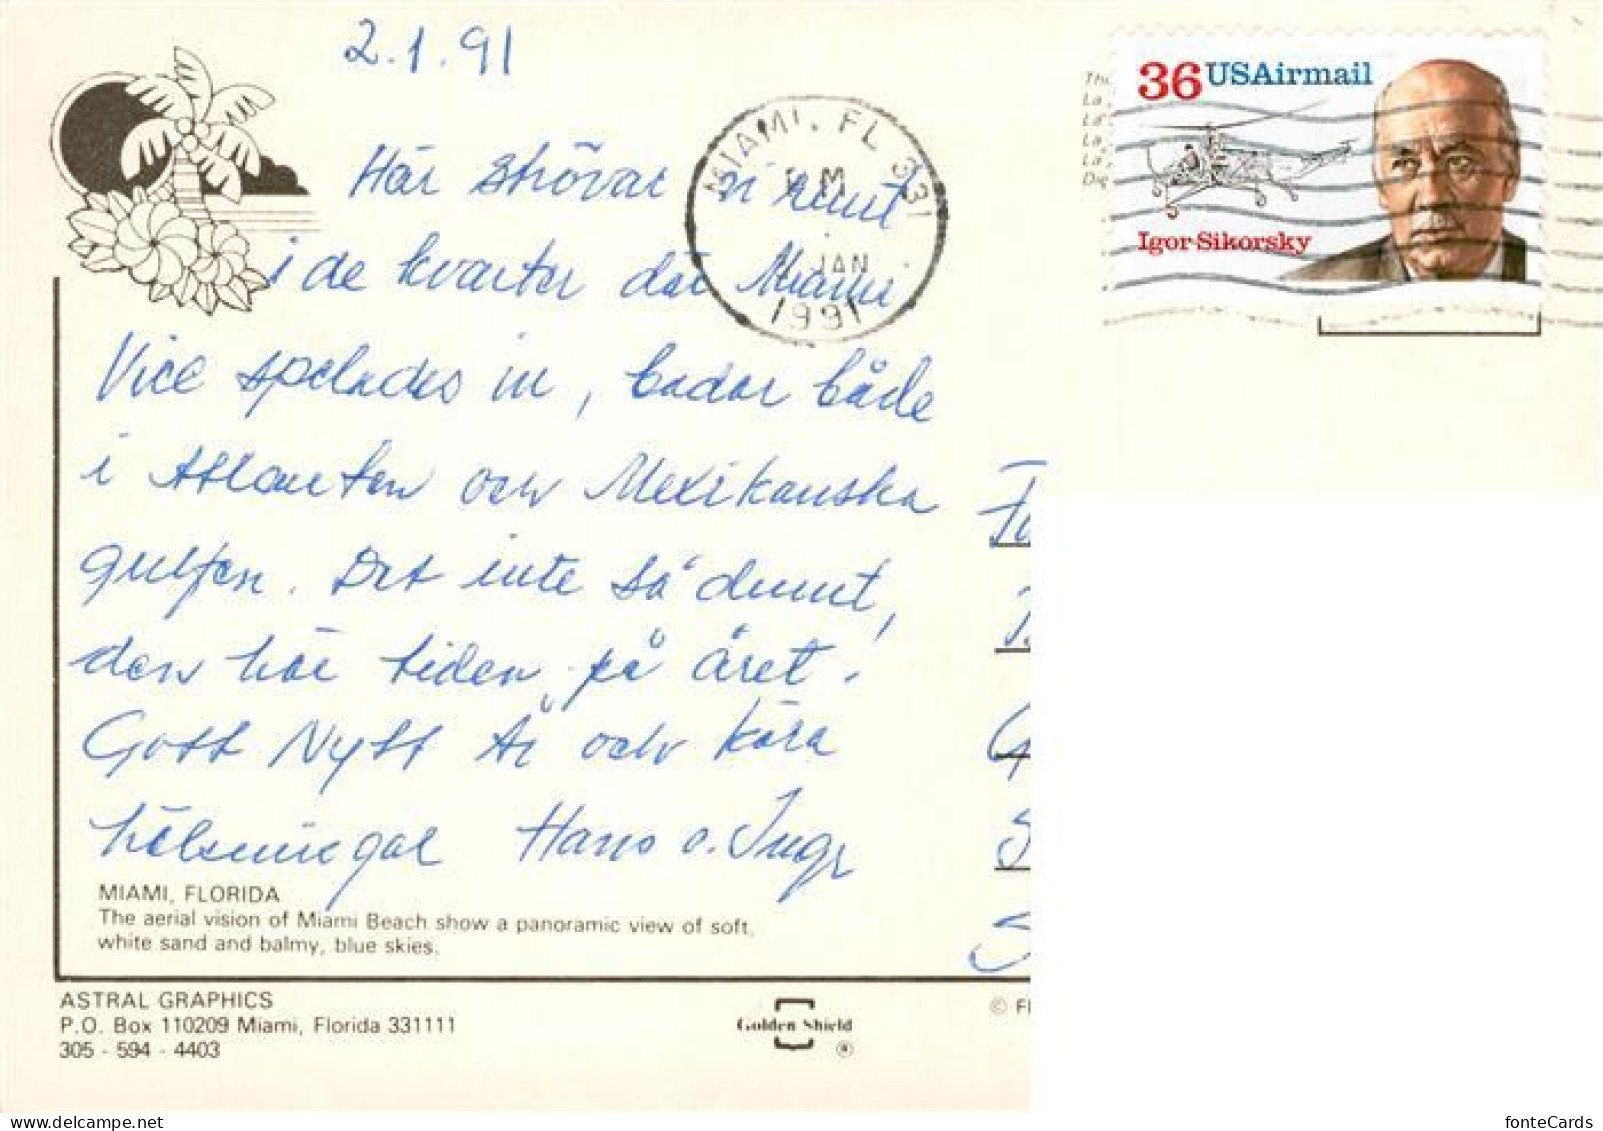 2.1.91
MIAMI, FL 331
PM
JAN
1991
36 USAirmail
Igor Sikorsky
Här strövar vi runt
i de kvarter där Miami
Vice spelades in, badar både
i Atlanten och Mexikanska
gulfen. Det inte så dumt,
den här tiden på året.
Gott Nytt År och kära
hälsningar Hans o. Inge
MIAMI, FLORIDA
The aerial vision of Miami Beach show a panoramic view of soft,
white sand and balmy, blue skies.
ASTRAL GRAPHICS
P.O. Box 110209 Miami, Florida 331111
305 - 594 - 4403
Golden Shield
®
© Fl
fonteCards